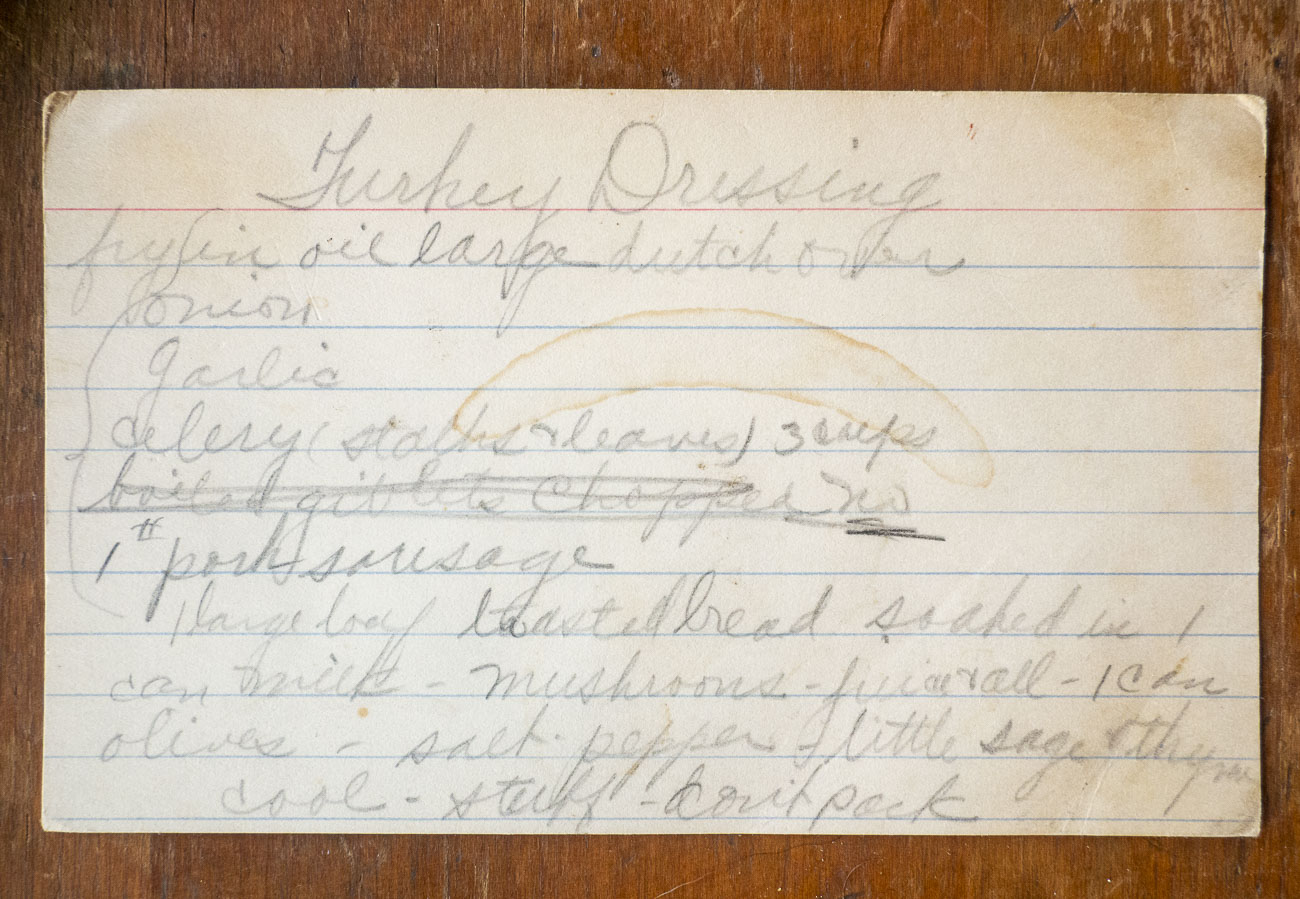 Turkey Dressing
fry in oil large dutch oven
onion
Garlic
celery (stalks & leaves) 3 cups
boiled giblets chopped No
1 # pork sausage
1 large loaf toasted bread soaked in 1
can milk - mushrooms - juice & all - 1 can
olives - salt - pepper - little sage & thyme
cool - stuff - don't pack